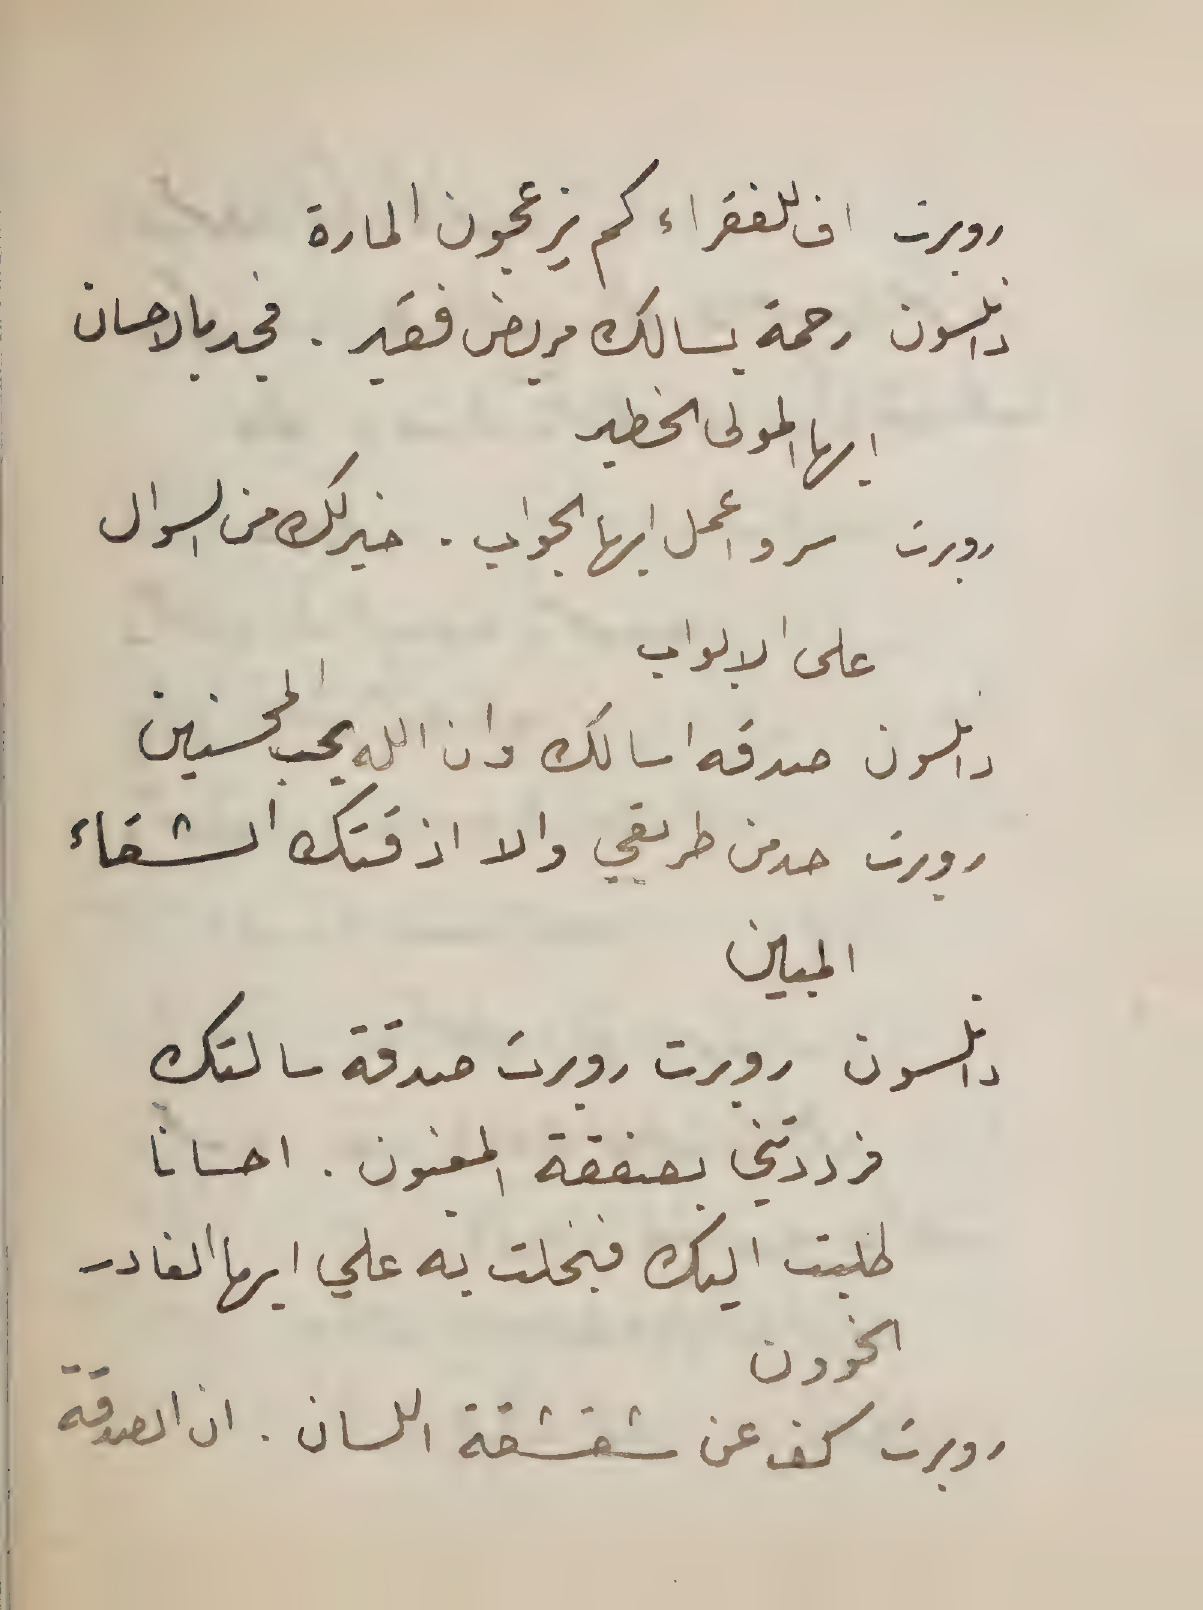 روبرت اف للفقراء كم يزعجون المارة
دانلسون رحمة يسالك مريض فقير . فجد بالاحسان
ايها المولى الخطير
روبرت سر واعمل ايها الجواب . خير لك من السوال
على الابواب
دانلسون صدقه اسالك وان الله يحب المحسنين
روبرت حد من طريقي والا اذقتك الشقاء
المبين
دانلسون روبرت روبرت صدقة سالتك
فرددتني بصفقة المغبون . احسانا
طلبت اليك فبخلت به علي ايها الغادر
الخوون
روبرت كف عن شقشقة اللسان . ان الصدقة